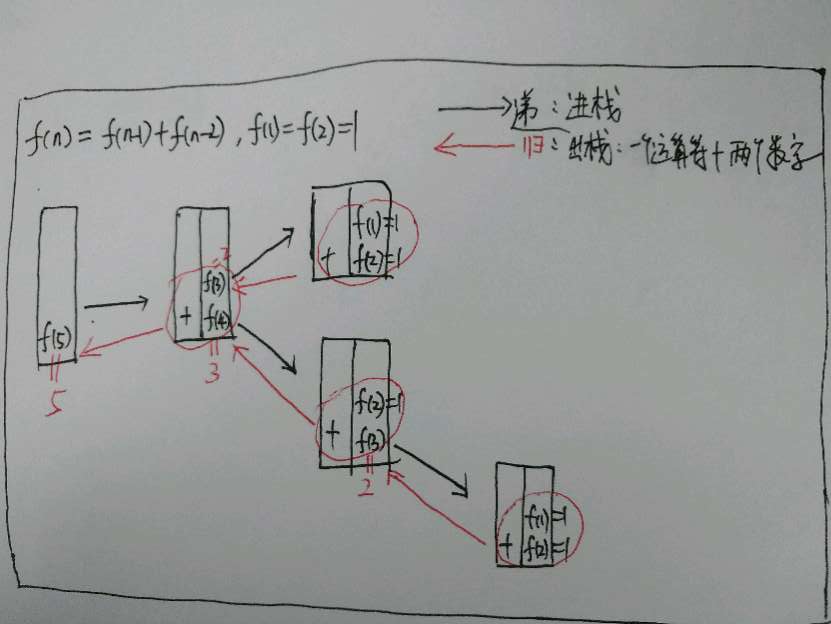 f(n) = f(n-1)+f(n-2), f(1)=f(2)=1
递：进栈
归：出栈：一个运算符+两个数字
f(5)
=
5
=2
f(3)
+ f(4)
=
3
f(1)=1
+ f(2)=1
f(2)=1
+ f(3)
=
2
f(1)=1
+ f(2)=1